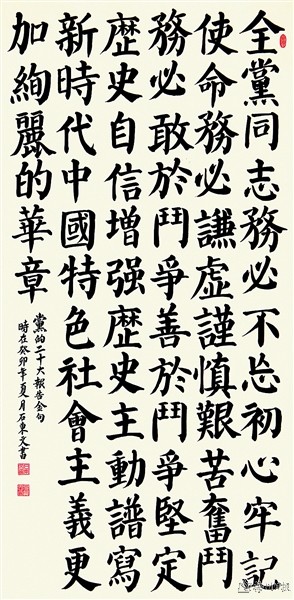 全黨同志務必不忘初心牢記
使命務必謙虛謹慎艱苦奮鬥
務必敢於鬥爭善於鬥爭堅定
歷史自信增强歷史主動譜寫
新時代中國特色社會主義更
加絢麗的華章
黨的二十大報告金句
時在癸卯年夏月石東文書